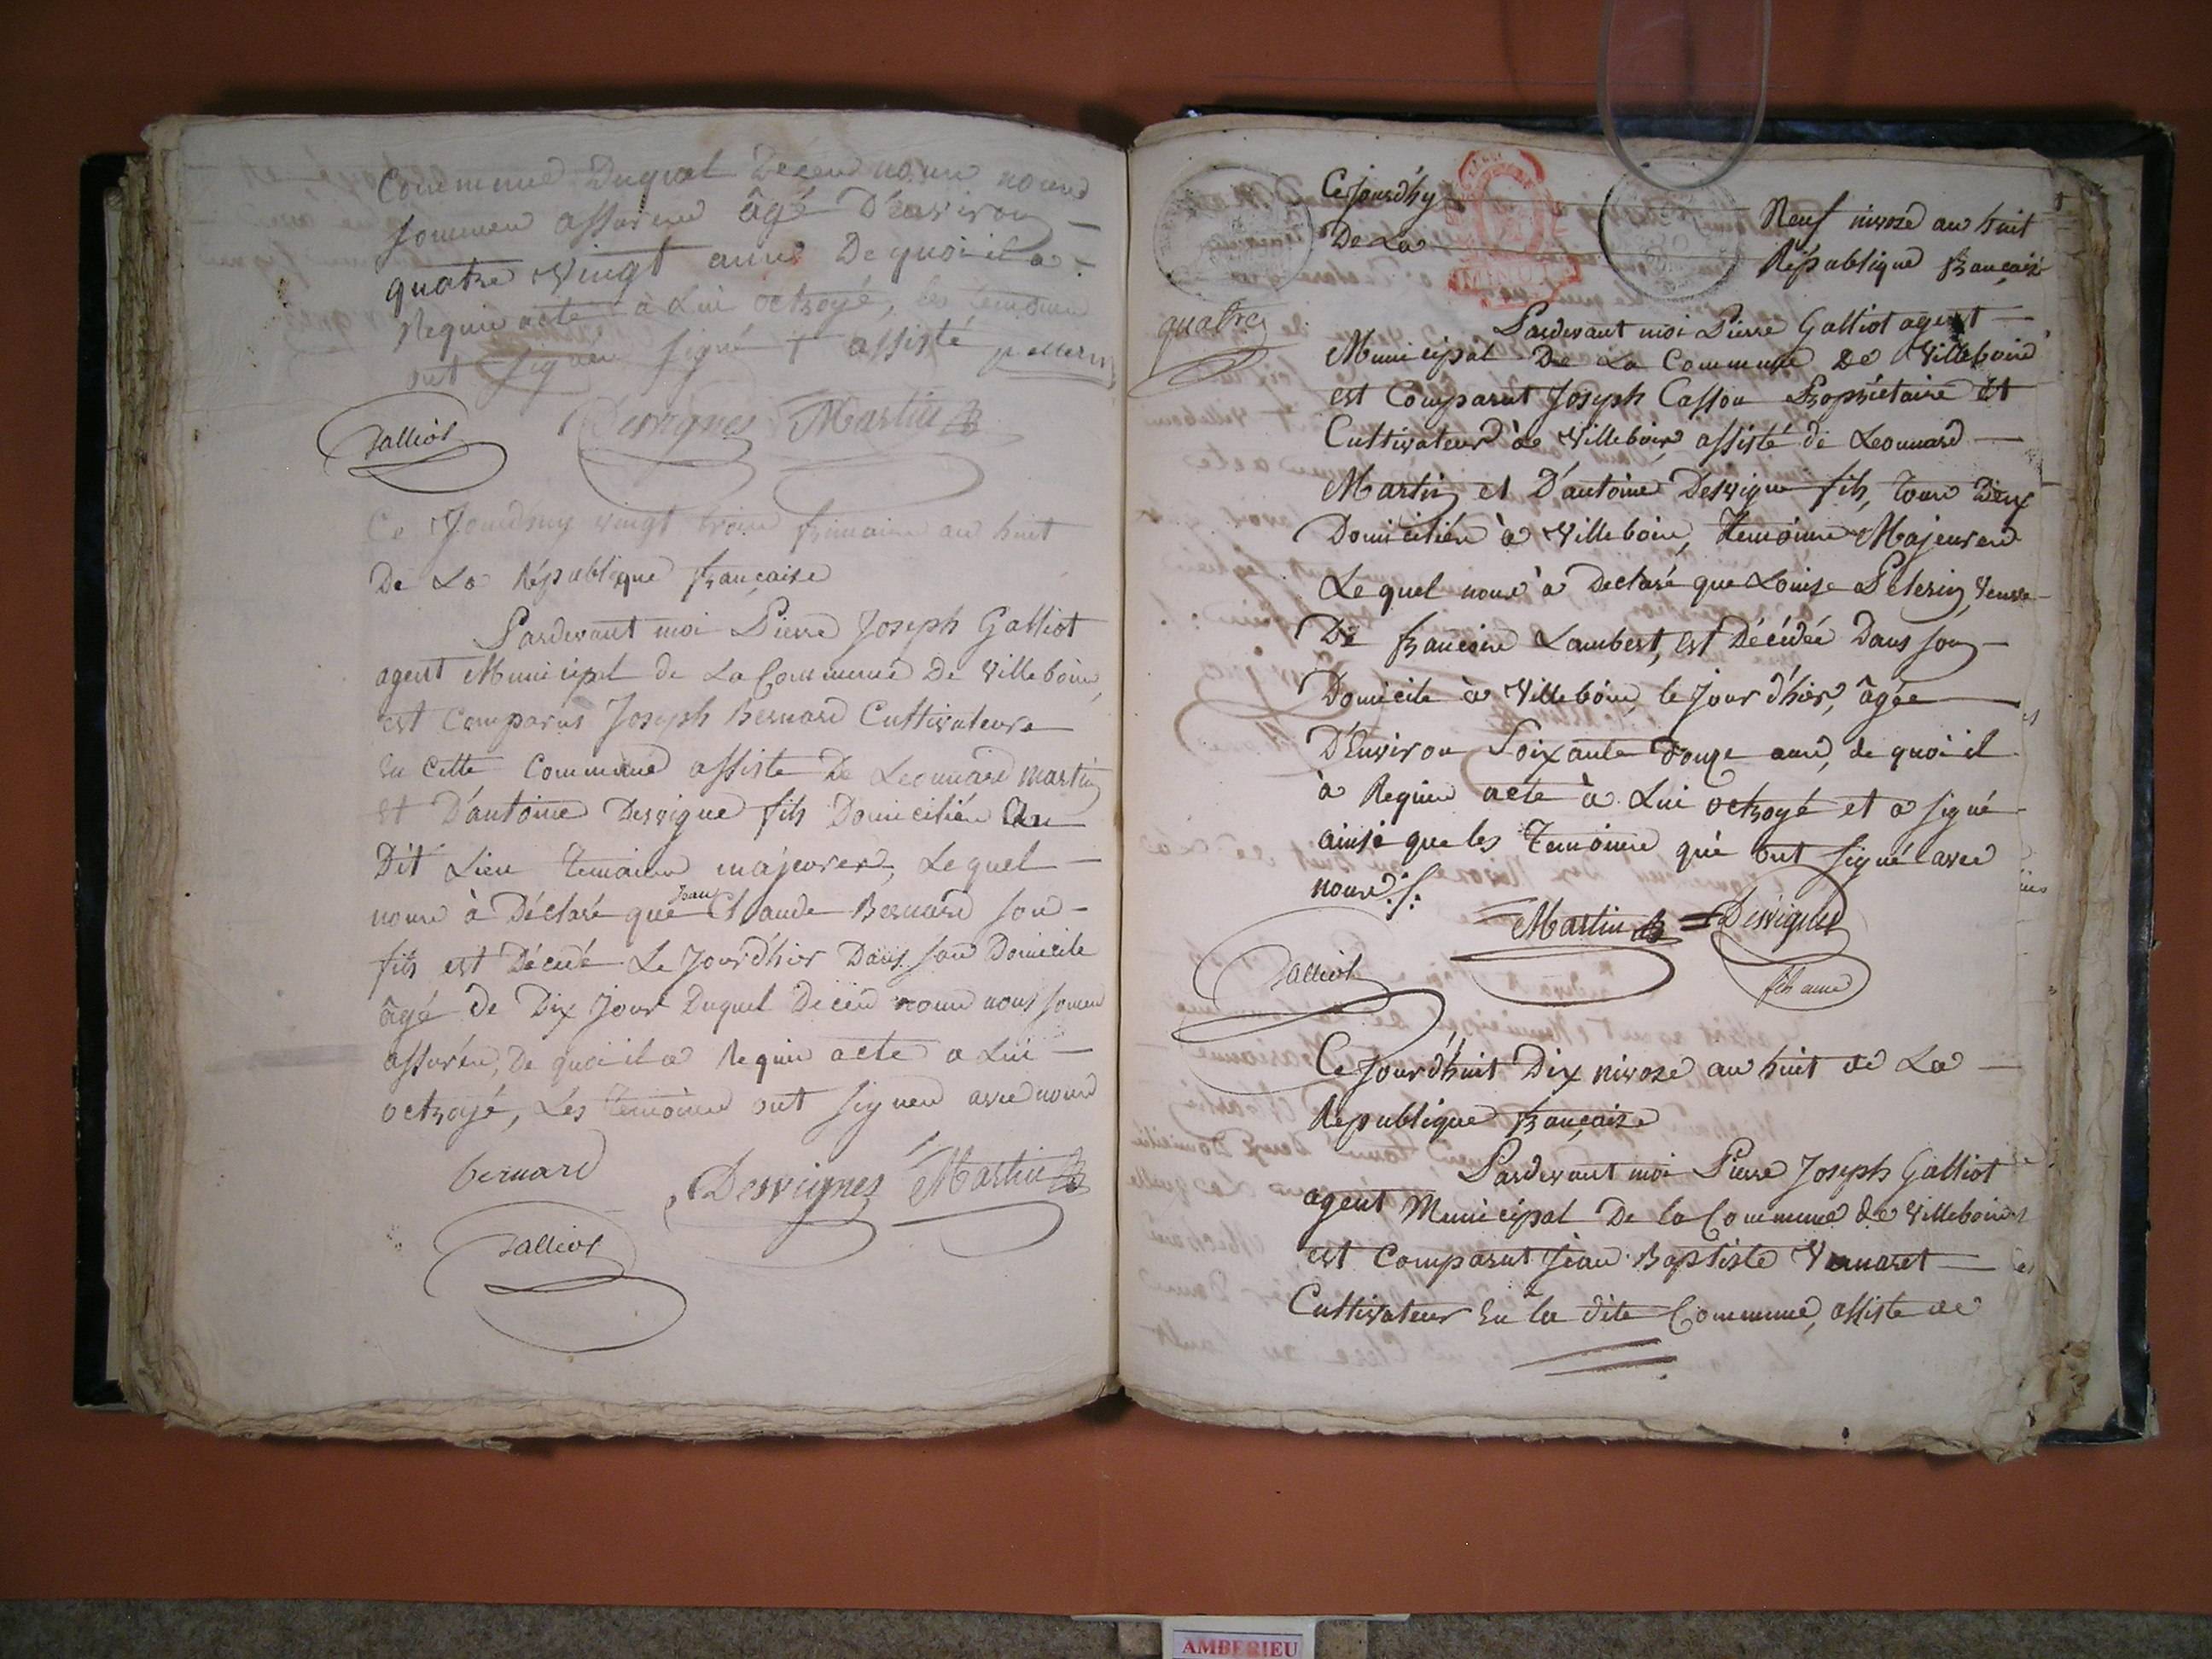 Commune Duquel Deces nous nous
sommes assuree âgé D'environ
quatre vingt anns De quoi il a
Requis acte à Lui octroyé, les temoins
ont signés signé + assisté pellerin
Galliot Desvignes Martin
Ce Jourdhuy vingt trois frimaire an huit
De La République française
Pardevant moi Pierre Joseph Galliot
agent Municipal de La Commune De villebois,
est comparus Joseph Bernard Cultivateurs
En cette Commune assiste De Leonnard martin
et D'antoine Desvigne fils Domiciliés Au
Dit Lieu temoins majeures, Lequel
nous à Déclaré que Jean Claude Bernard son
fils est Décédé Le Jour d'hier Dans son Domicile
âgé de Dix Jour Duquel Décés nous nous somes
assurés, De quoi il a Requis acte a Lui
octroyé, Les temoins ont signes avec nous
bernard Desvignes Martin
Galliot
Ce Jourdhy Neuf nivose an huit
De La République française
quatre
Pardevant moi Pierre Galliot agent
Municipal De La Commune De Villebois
est Comparut Joseph Casson Propriétaire et
Cultivateur à Villebois assisté de Leonnard
Martin et D'antoine Desvigne fils, tous Deux
Domiciliés à Villebois, temoins Majeures
Le quel nous à Declaré que Louise Pelerin, veuve
De françois Lambert, est Décédée Dans son
Domicile à Villebois, le Jour d'hier, âgée
D'Environ Soixante Douze ans, de quoi il
à Requis acte à Lui octroyé et a signé
ainsi que les temoins qui ont signé avec
nous ./.
Martin = Desvignes
Galliot fils ainé
Ce Jourd'huit Dix nivose an huit de La
République française
Pardevant moi Pierre Joseph Galliot
agent Municipal De la Commune de villebois
est Comparut Jean Baptiste Vanaret
Cultivateur En la dite Commune, assiste de
AMBERIEU